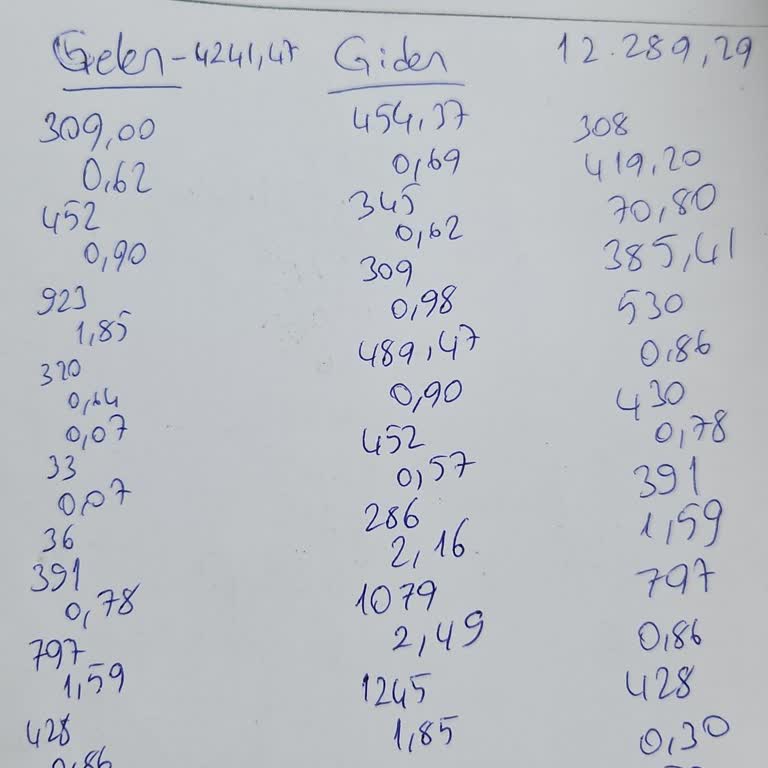 Gelen - 4241,47
309,00
0,62
452
0,90
923
1,85
320
0,64
0,07
33
0,07
36
391
0,78
797
1,59
428
0,86
Giden
454,37
0,69
345
0,62
309
0,98
489,47
0,90
452
0,57
286
2,16
1079
2,49
1245
1,85
12.289,29
308
419,20
70,80
385,41
530
0,86
430
0,78
391
1,59
797
0,86
428
0,30